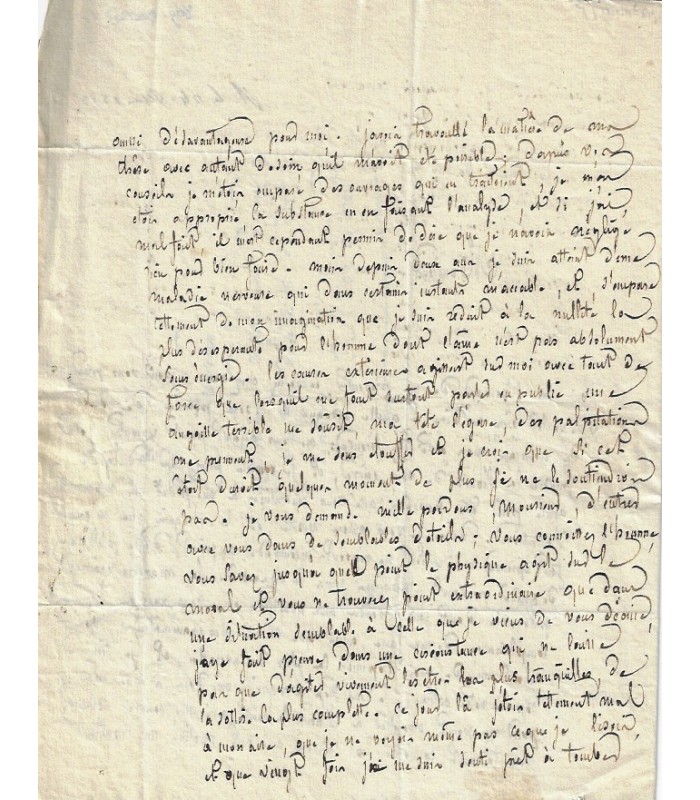 aussi désavantageuse pour moi. j'avois travaillé la matière de ma
thèse avec autant de soin qu'il m'avoit été possible; depuis vos
conseils je m'étois emparé des ouvrages qui en traitoient, je m'en
étois approprié la substance en en faisant l'analyse, et si j'ai
mal fait il m'est cependant permis de dire que je n'avois négligé
rien pour bien faire. mais depuis deux ans je suis atteint d'une
maladie nerveuse qui dans certains instants m'accable, et s'empare
tellement de mon imagination que je suis réduit à la nullité la
plus désespérante pour l'homme dont l'âme n'est pas absolument
sans énergie. les causes extérieures agissent sur moi avec tant de
force que lorsqu'il me faut surtout parler en public une
angoisse terrible me saisit, ma tête s'égare, des palpitations
me prennent, je me sens étouffer et je crois que si cet
état duroit quelques moments de plus je ne le soutiendrois
pas. je vous demande mille pardons, Monsieur, d'entrer
avec vous dans de semblables détails; vous connoissez l'homme,
vous savez jusqu'à quel point le physique agit sur le
moral et vous ne trouverez point extraordinaire que dans
une situation semblable à celle que je viens de vous décrire,
j'aye fait preuve dans une circonstance qui ne laisse
pas que d'agiter vivement les êtres les plus tranquilles, de
la sottise la plus complette. ce jour là j'étois tellement mal
à mon aise, que je ne voyois même pas ce que je lisois,
et que vingt fois je me suis senti prêt à tomber